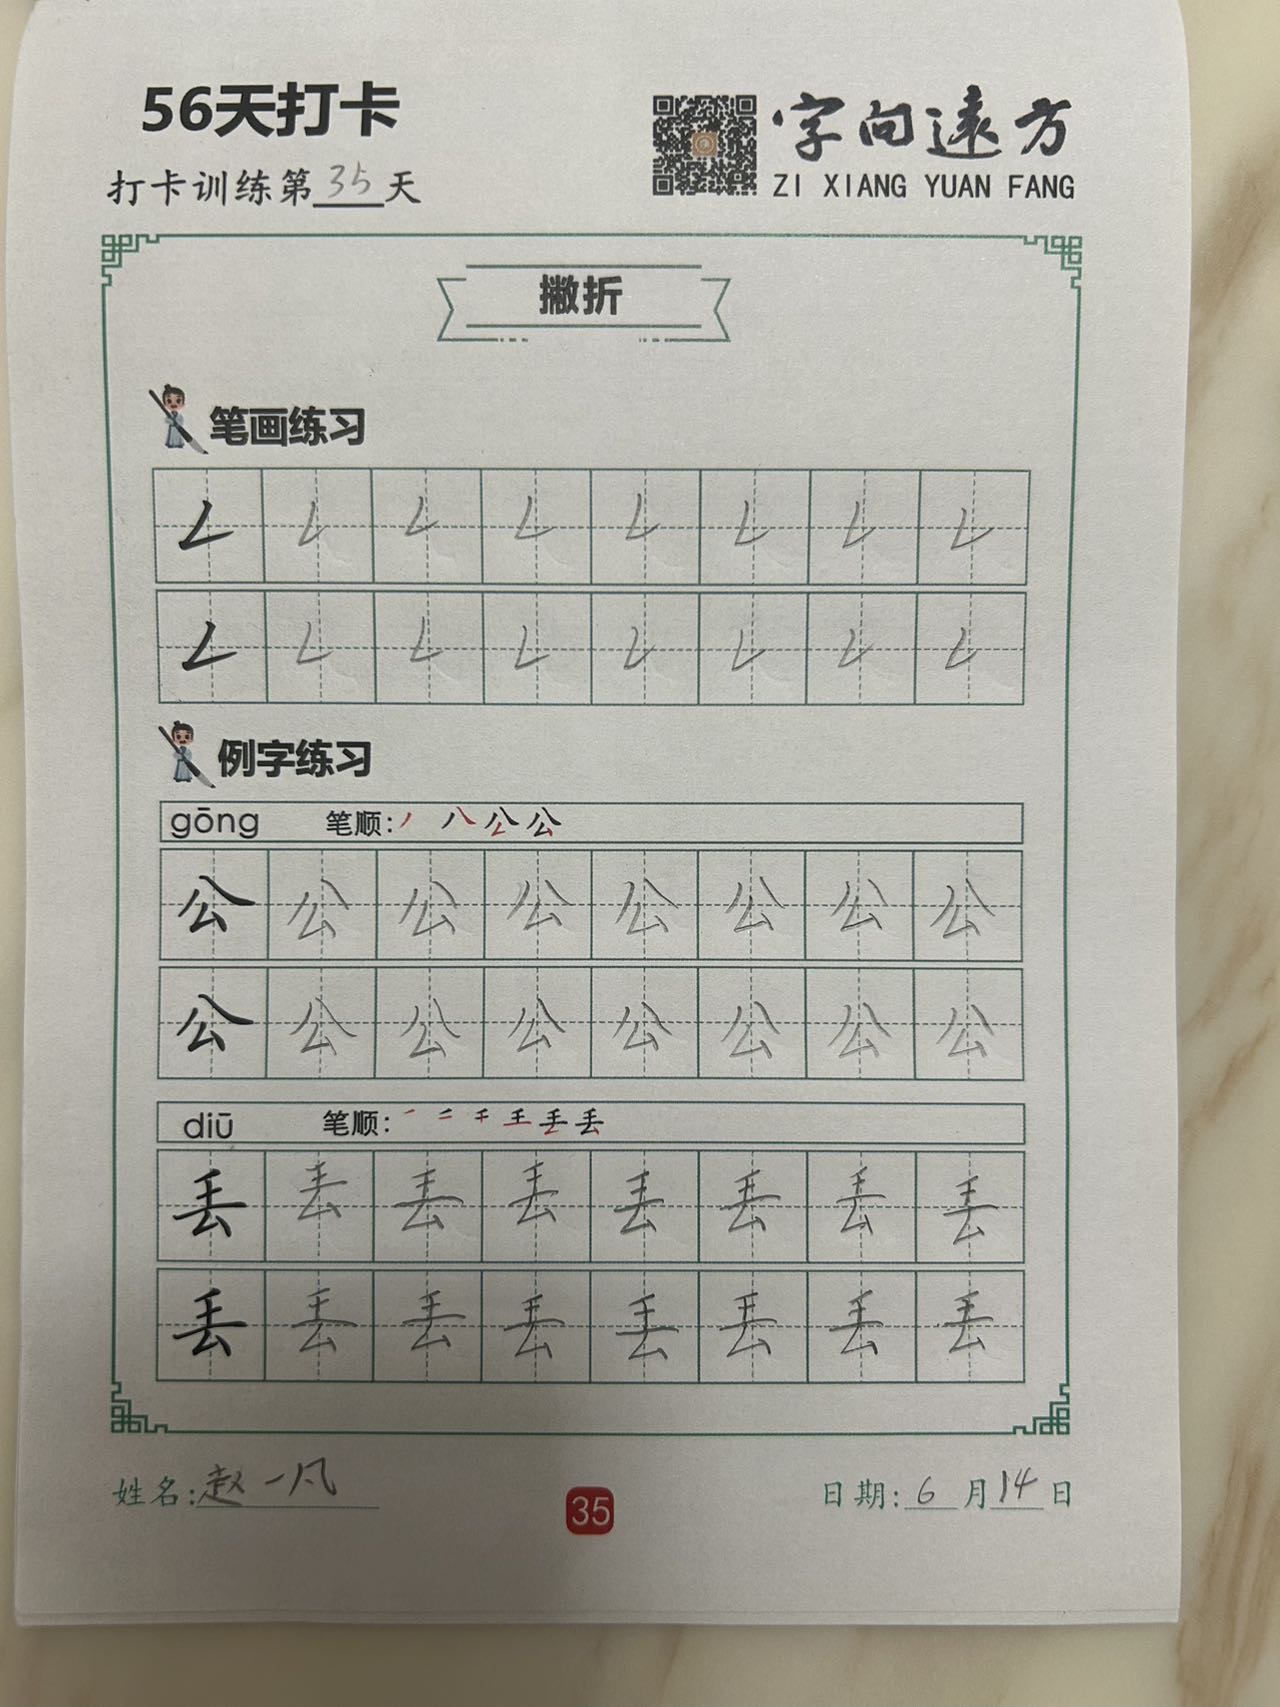 56天打卡
打卡训练第35天
字向遠方
ZI XIANG YUAN FANG
撇折
笔画练习
𠃋 𠃋 𠃋 𠃋 𠃋 𠃋 𠃋 𠃋
𠃋 𠃋 𠃋 𠃋 𠃋 𠃋 𠃋 𠃋
例字练习
gōng 笔顺:丿 八 公 公
公 公 公 公 公 公 公 公
公 公 公 公 公 公 公 公
diū 笔顺: 一 二 千 王 丢 丢
丢 丢 丢 丢 丢 丢 丢 丢
丢 丢 丢 丢 丢 丢 丢 丢
姓名:赵一凡
35
日期:6月14日